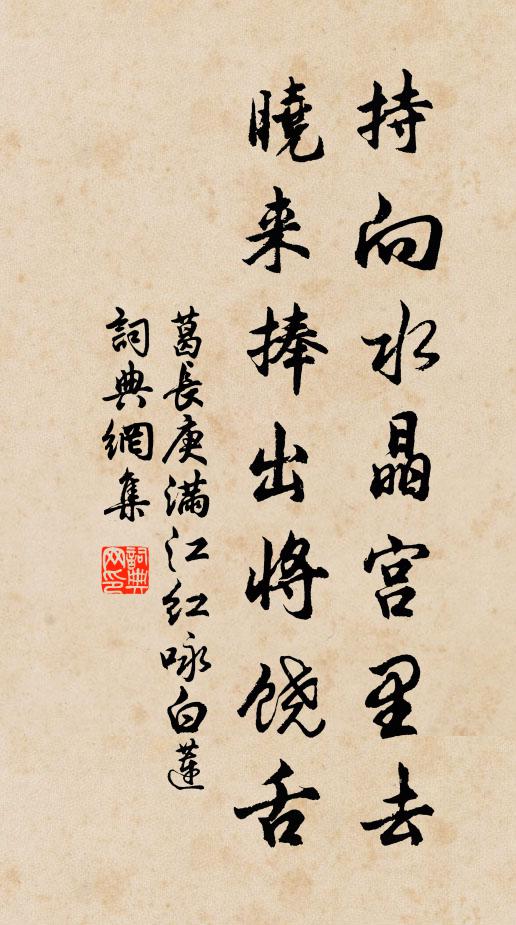 持向水晶宫里去
曉来捧出将饶舌
葛長庚满江红咏白蓮
詞典網集
詞典网印